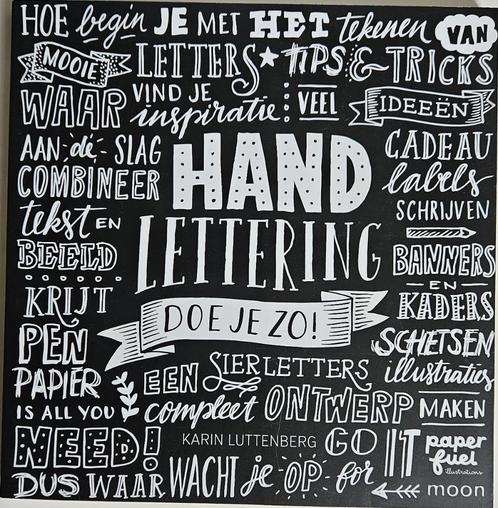 HOE begin JE MET HET tekenen VAN
MOOIE LETTERS TIPS & TRICKS
WAAR VIND JE inspiratie: VEEL IDEEËN
AAN de SLAG
COMBINEER
tekst EN
BEELD
KRIJT
PEN
PAPIER
IS ALL YOU
NEED!
HAND
LETTERING
DOE JE ZO!
CADEAU
labels
SCHRIJVEN
BANNERS
EN
KADERS
SCHETSEN
illustraties
EEN SIERLETTERS
compleet ONTWERP MAKEN
KARIN LUTTENBERG GO IT paper
fuel
illustrations
DUS WAAR WACHT je OP for moon